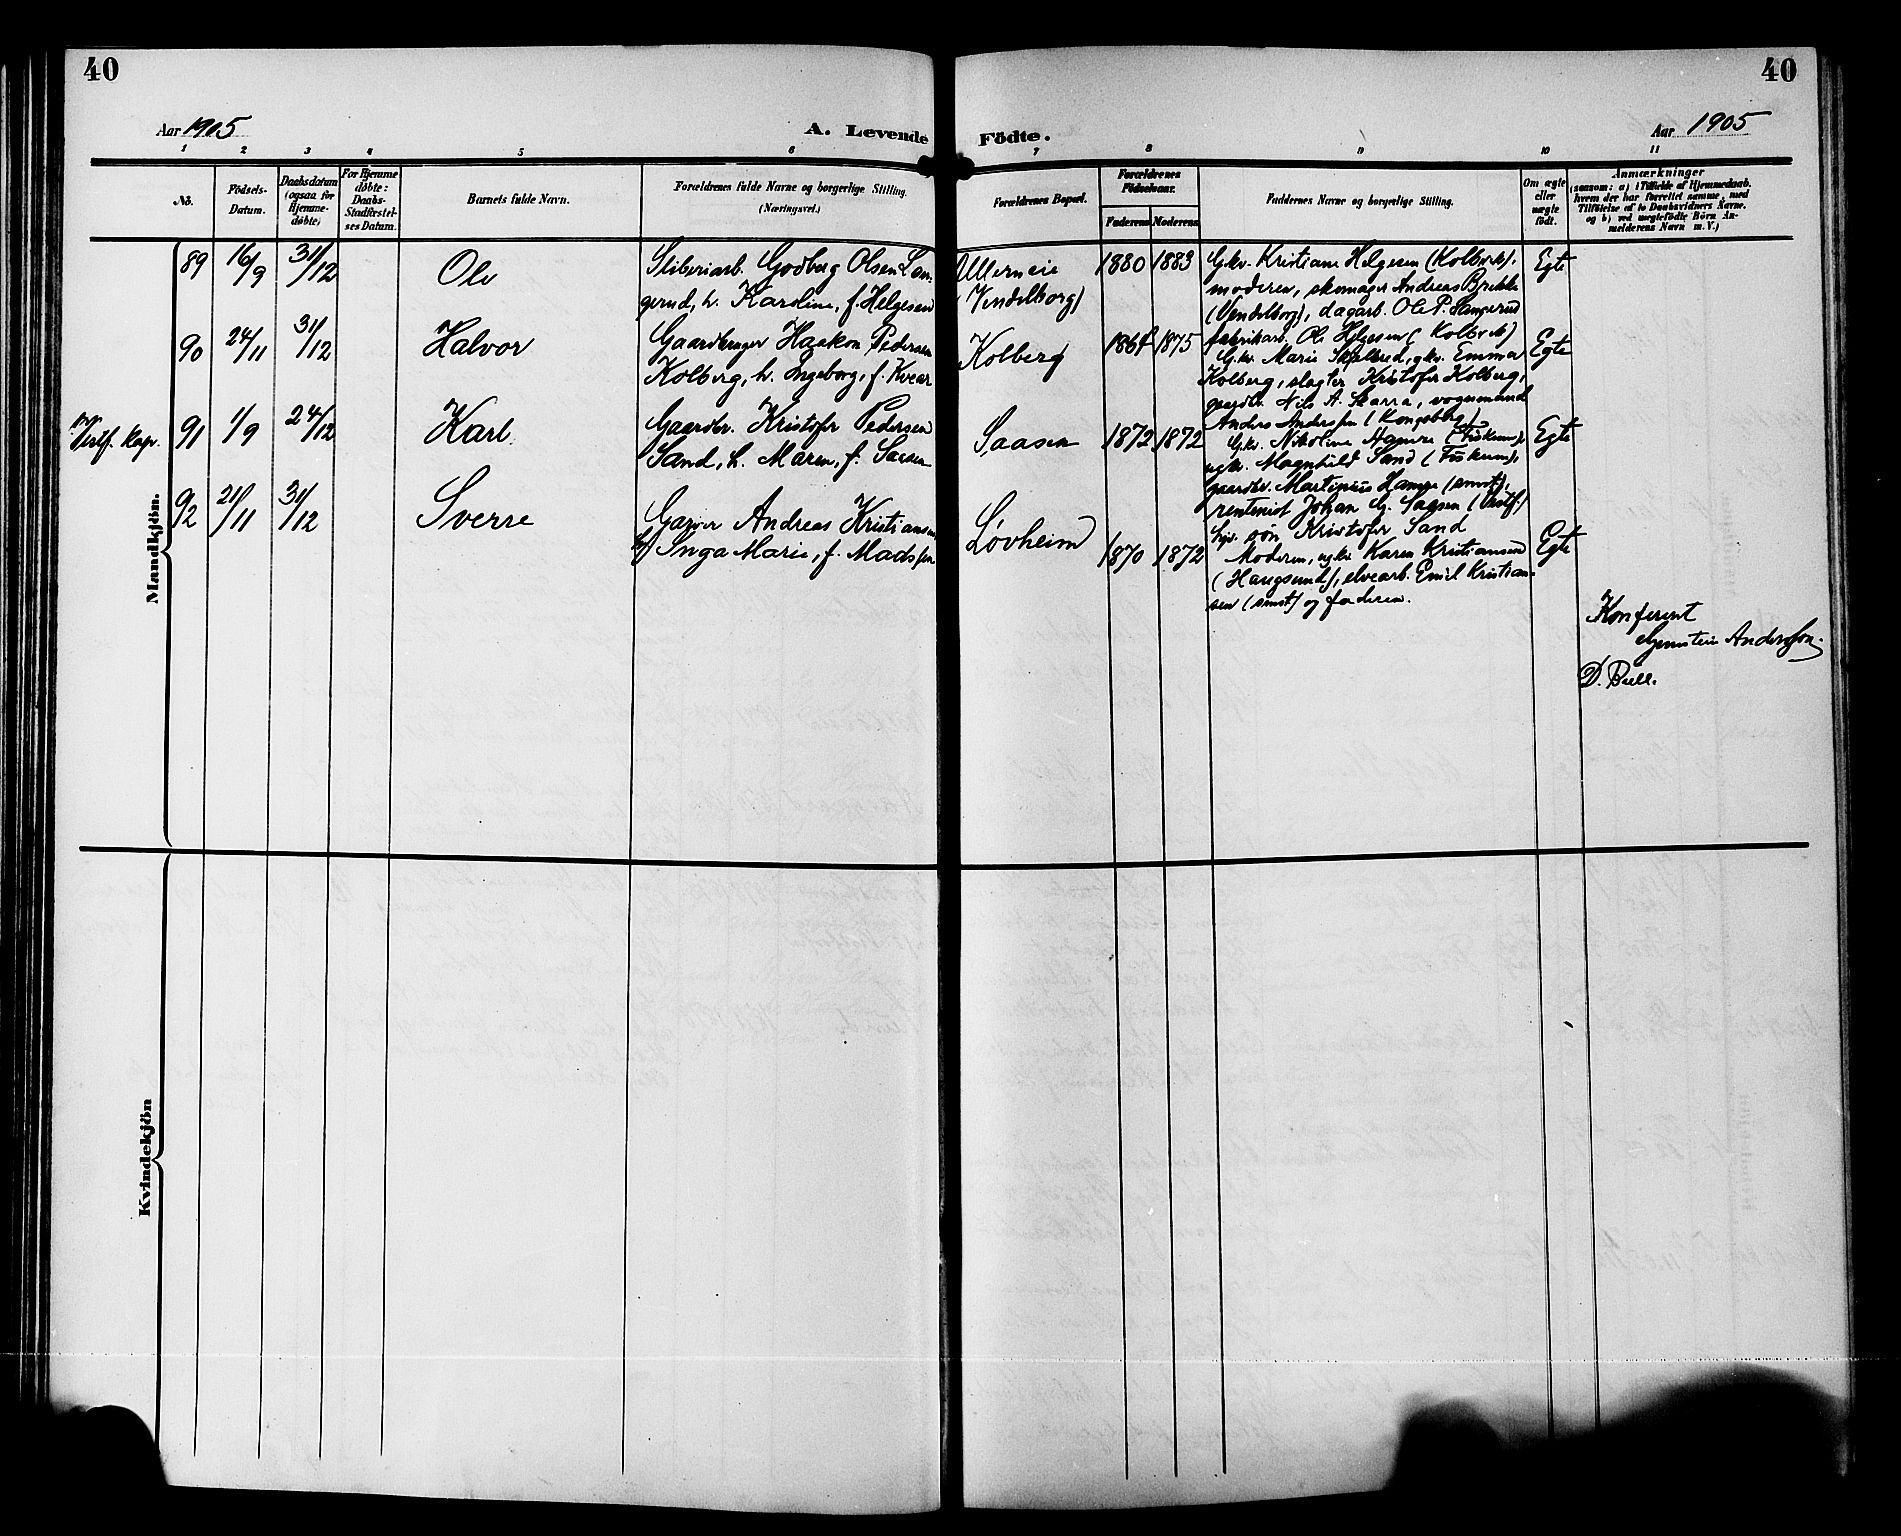 40
40
Aar 1905
A. Levende
Födte.
Aar 1905
1 2 3 4 5 6 7 8 9 10 11
No.
Födsels-
Datum.
Daabsdatum
(ogsaa for
Hjemme-
døbte)
For Hjemme
døbte:
Daabs-
Stadfæstel-
ses Datum.
Barnets fulde Navn.
Forældrenes fulde Navne og borgerlige Stilling.
(Næringsvei.)
Forældrenes Bopæl.
Forældrenes
Födselsaar.
Faderens Moderens
Faddernes Navne og borgerlige Stilling.
Om ægte
eller
uægte
födt.
Anmærkninger
(saasom: a) i Tilfælde af Hjemmedaab,
hvem der har forrettet samme, med
Tilföielse af to Daabsvidners Navne,
og b) ved uægtefödte Börn An-
melderens Navn m. V.)
Mandkjön.
89 16/9 31/12 Ole
Sliberiarb. Godberg Olsen Lan-
gerud, h. Karoline, f. Helgesen
Ullerneie
(Vendelborg)
1880 1883
Gkv. Kristiane Helgesen (Kolbrek),
moderen, skomager Andreas Brekke
(Vendelborg), dagarb. Ole P. Langerud
fabrikarb. Ole Helgesen (Kolbrek)
Egte
90 24/11 31/12 Halvor
Gaardbruger Haakon Pedersen
Kolberg, h. Ingeborg, f. Kvear
Kolberg
1864 1875
Gkv. Marie Skjelbred, gkv. Emma
Kolberg, slagter Kristofer Kolberg,
gaardbr. Nils A. Skarra, vognmand
Anders Anderssen (Kongsberg)
Egte
Vestf. Kap. 91 1/9 24/12 Karl
Gaardbr. Kristofer Pedersen
Sand, h. Maren, f. Saasen
Saasen
1872 1872
Gkv. Nikoline Hamre (Fiskum),
ugkv. Magnhild Sand (Fiskum),
gaardbr. Martinius Hamre (smst),
rentenist Johan G. Saasen (Vestf)
søn Kristofer Sand
Egte
92 21/11 31/12 Sverre
Garver Andreas Kristiansen
Inga Marie, f. Madssen
Løvheim
1870 1872
Moderen, ugkv. Karen Kristiansen
(Haugsund), elvearb. Emil Kristian-
sen (smst) og faderen.
Egte
Konfereret
Andersson.
D. Bull.
Kvindekjön